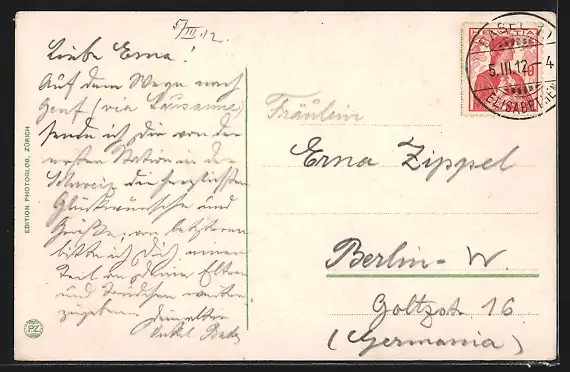 5/III 12.
Liebe Erna!
Auf dem Wege nach
Genf (via Lausanne)
sende ich Dir von der
ersten Station in der
Schweiz die herzlichsten
Glückwünsche und
Grüße, von letzteren
bitte ich Dich einen
Teil an Deine Eltern
und Trudchen weiter-
zugeben. Dein alter
Onkel
EDITION PHOTOGLOB, ZÜRICH
PZ
HELVETIA
10
BASEL
5.III.12-4
ELISABETHEN
Fräulein
Erna Zippel
Berlin-W.
Goltzstr. 16
(Germania)